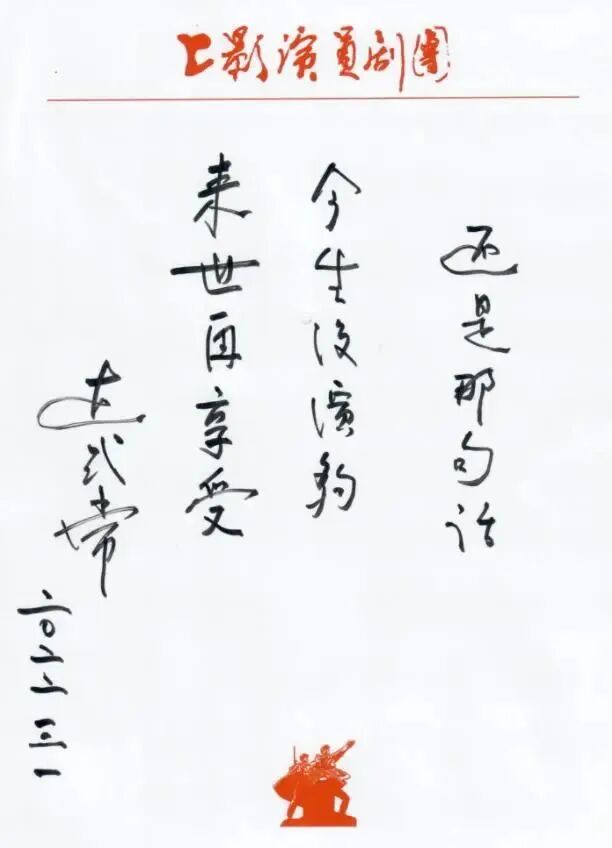 上影演员剧团
还是那句话
今生没演够
来世再享受
达式常
二〇二二三一